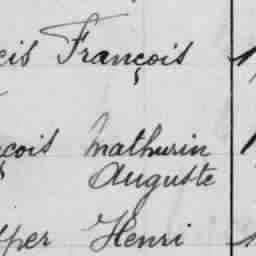 cis François
çois Mathurin
Auguste
pper Henri